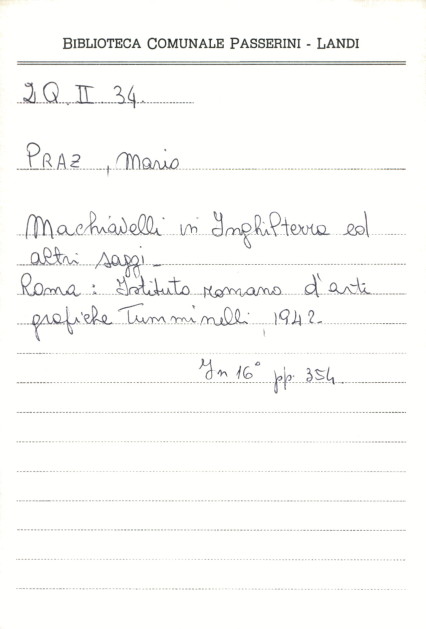 BIBLIOTECA COMUNALE PASSERINI - LANDI
2Q. II 34.
PRAZ, Mario
Machiavelli in Inghilterra ed
altri saggi -
Roma: Istituto romano d'arti
grafiche Tumminelli, 1942.
In 16° pp. 354.